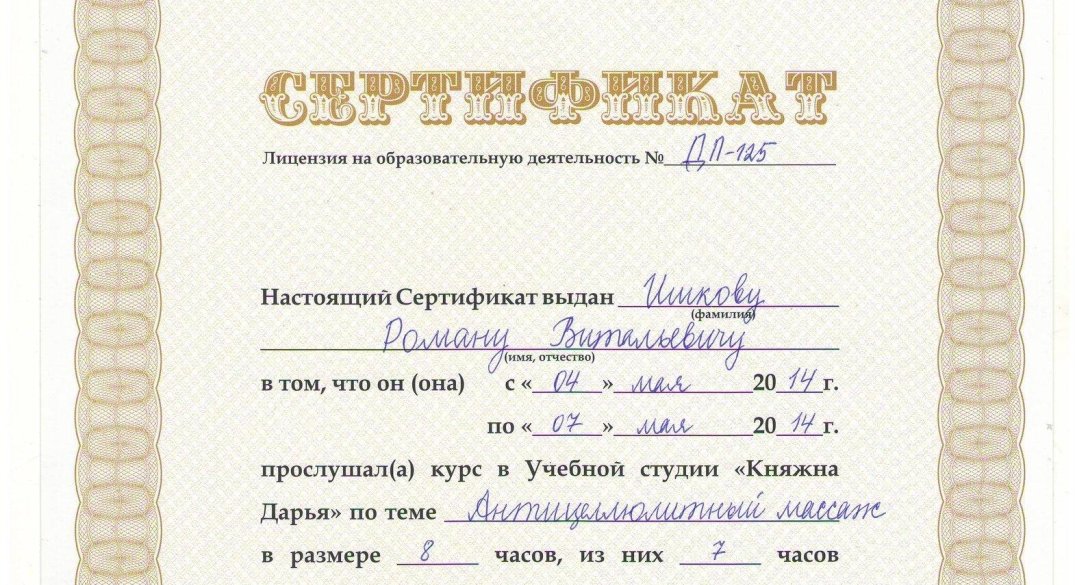 СЕРТИФИКАТ
Лицензия на образовательную деятельность № ДЛ-125
Настоящий Сертификат выдан Ишкову
(фамилия)
Роману Витальевичу
(имя, отчество)
в том, что он (она) с «04» мая 2014 г.
по «07» мая 2014 г.
прослушал(а) курс в Учебной студии «Княжна
Дарья» по теме Антицеллюлитный массаж
в размере 8 часов, из них 7 часов